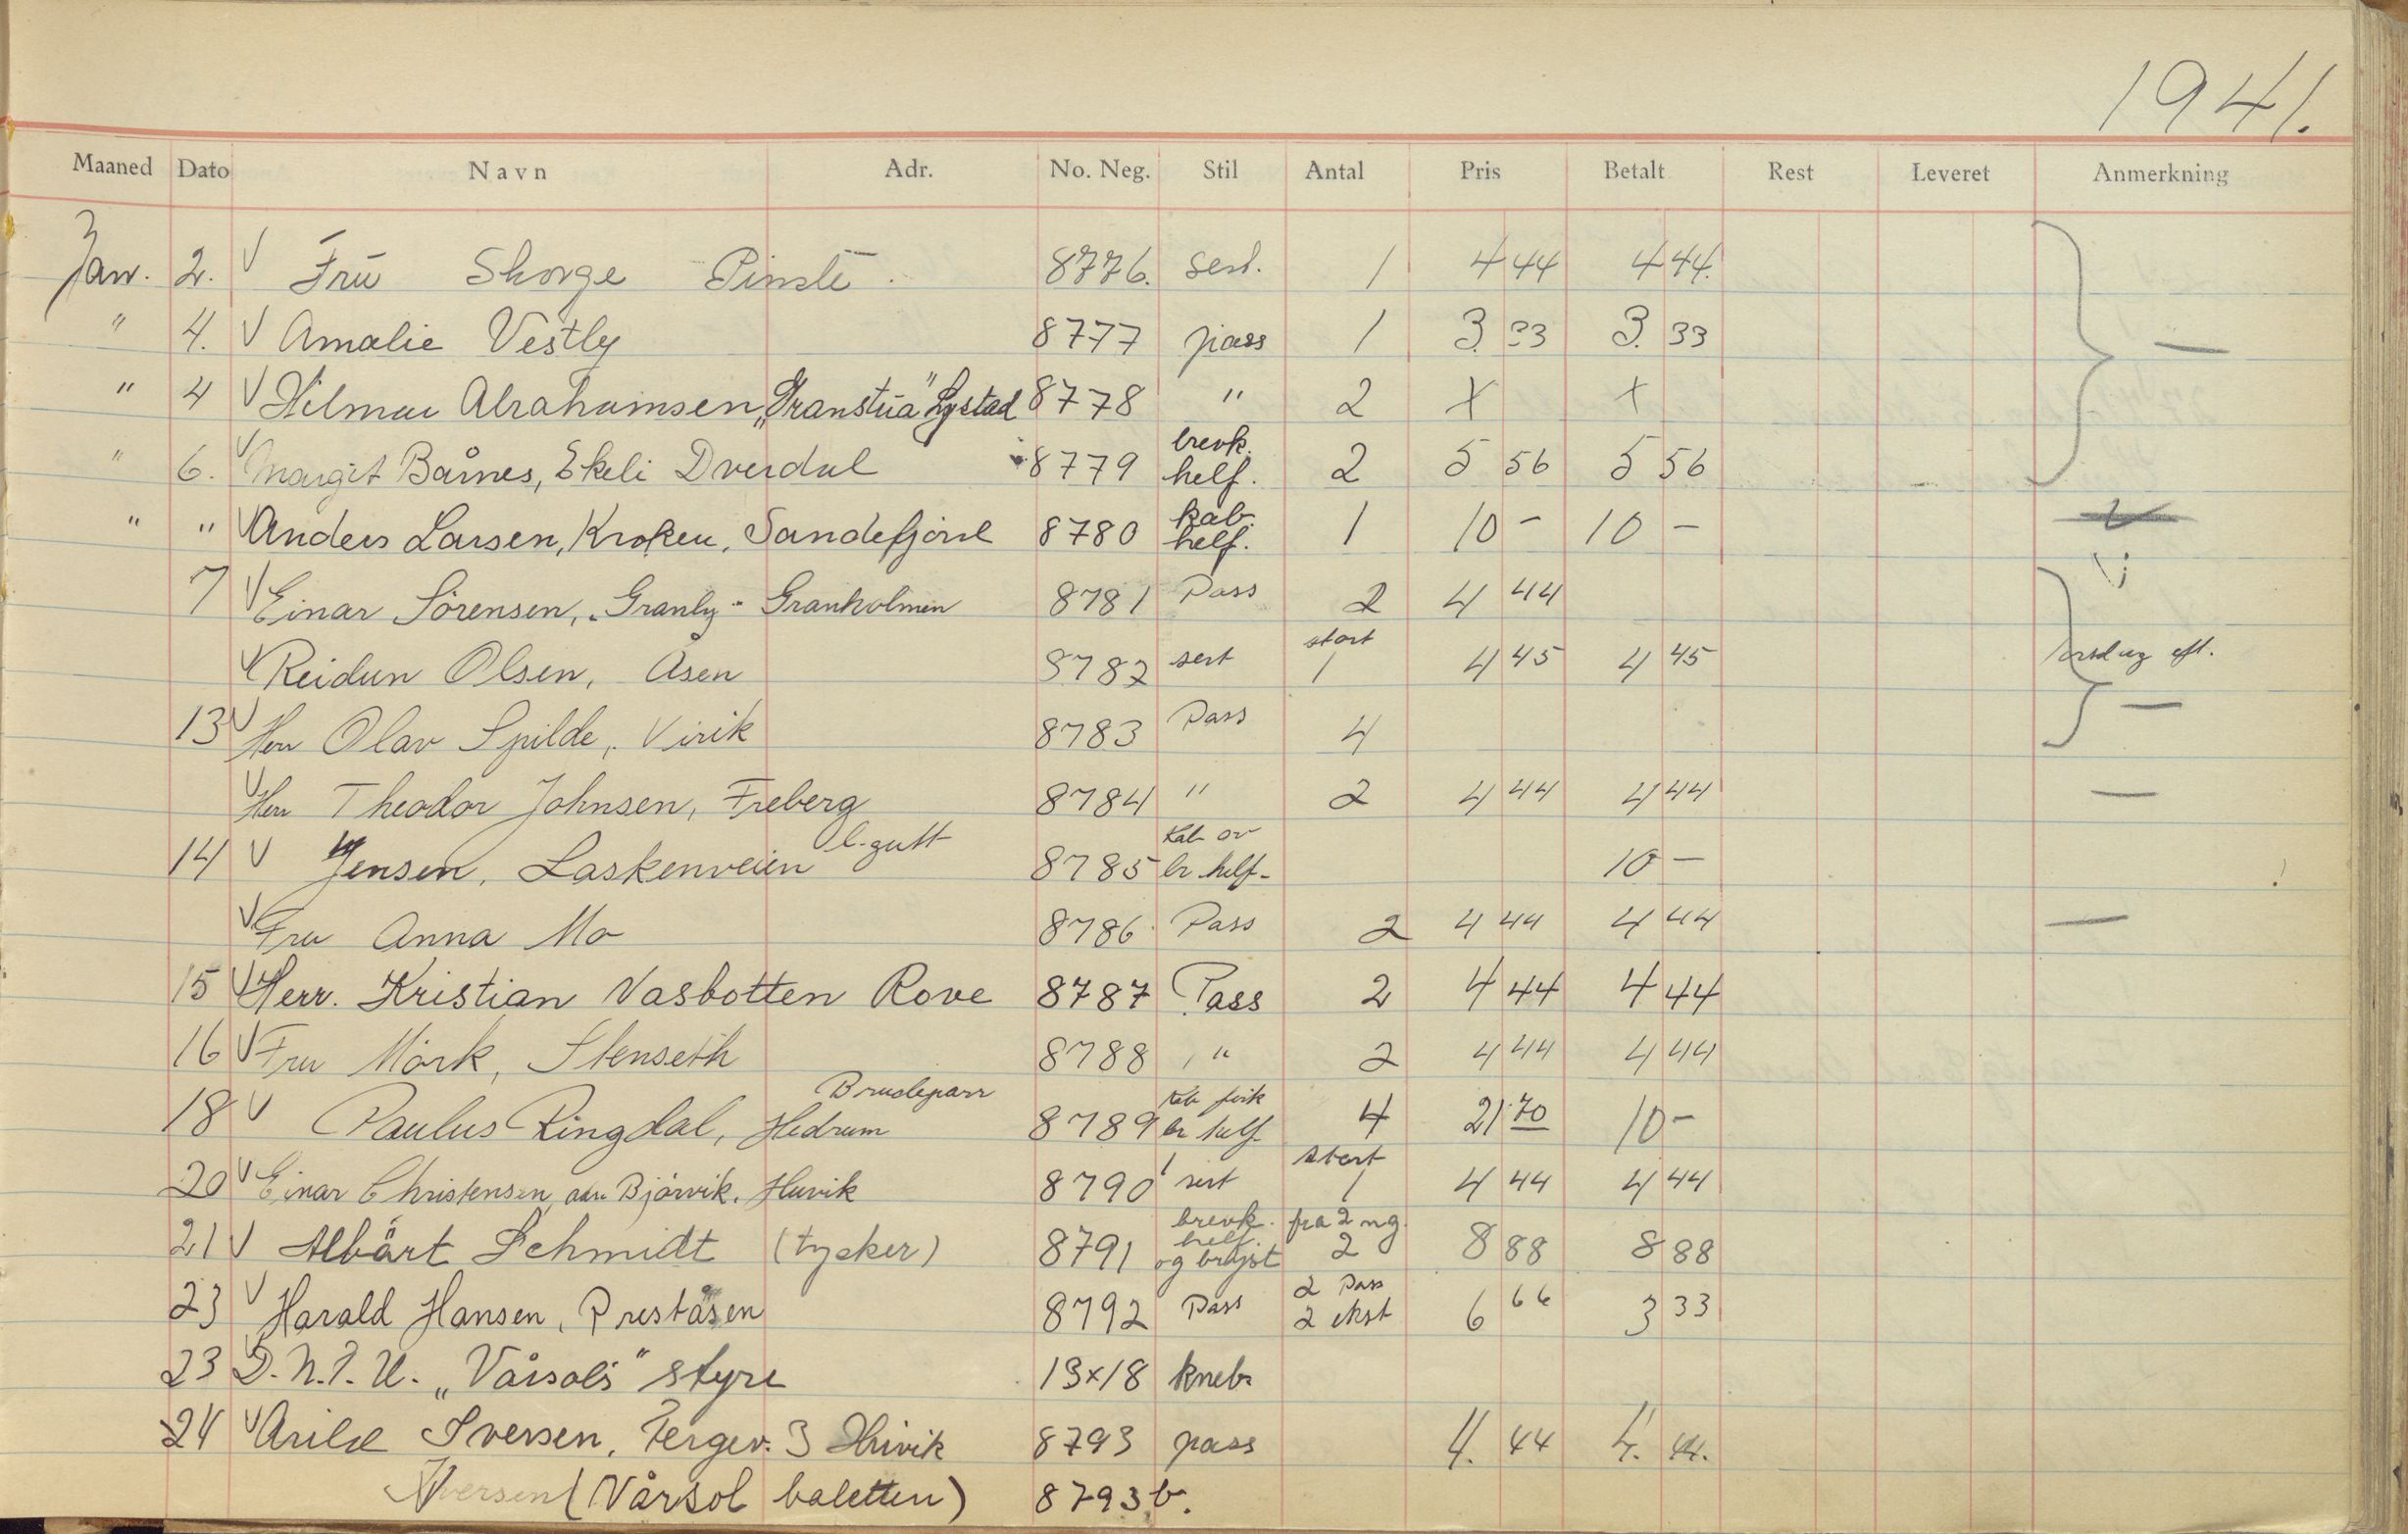 1941.
Maaned Dato Navn Adr. No. Neg. Stil Antal Pris Betalt Rest Leveret Anmerkning
Jan. 2. Fru Skorge 8776. sert. 1 4 44 4 44.
" 4. Amalie Vestly 8777 pass 1 3. 33 3. 33 —
" 4 Hilmar Abrahamsen, „Granstua" Lystad 8778 " 2 X X
" 6. Margit Bårnes, Ekeli Dverdal 8779 brevk. helf. 2 5 56 5 56
" " Anders Larsen, Kroken, Sandefjord 8780 kab. helf. 1 10 - 10 -
7 Einar Sörensen, „Granly" Granholmen 8781 Pass 2 4 44
Reidun Olsen, Åsen 8782 sert stort 1 4 45 4 45 eft.
13 Herr Olav Spilde, Virik 8783 Pass 4 —
Herr Theodor Johnsen, Freberg 8784 " 2 4 44 4 44 —
14 Jensen, Laskenveien l. gutt 8785 Kab ov br helf- 10 —
Fru Anna Mo 8786 Pass 2 4 44 4 44 —
15 Herr. Kristian Vasbotten Rove 8787 Pass 2 4 44 4 44
16 Fru Mörk, Stenseth 8788 " 2 4 44 4 44
18 Paulus Ringdal, Hedrum Brudeparr 8789 br helf- 4 21 70 10 -
20 Einar Christensen, adr. Bjärvik. Huvik 8790 sert stort 1 4 44 4 44
21 Albärt Schmidt (tysker) 8791 brevk. helf. og brøjst fra 2 ng. 2 8 88 8 88
23 Harald Hansen, Preståsen 8792 Pass 2 Pass 2 ekst 6 66 3 33
23 D.N.T.U. „Vårsols" styre 13x18 kneb
24 Arild Iversen, Fergev. 3 Huvik 8793 pass 4. 44 4. 44.
Iversen (Vårsol baletten) 8793 b.